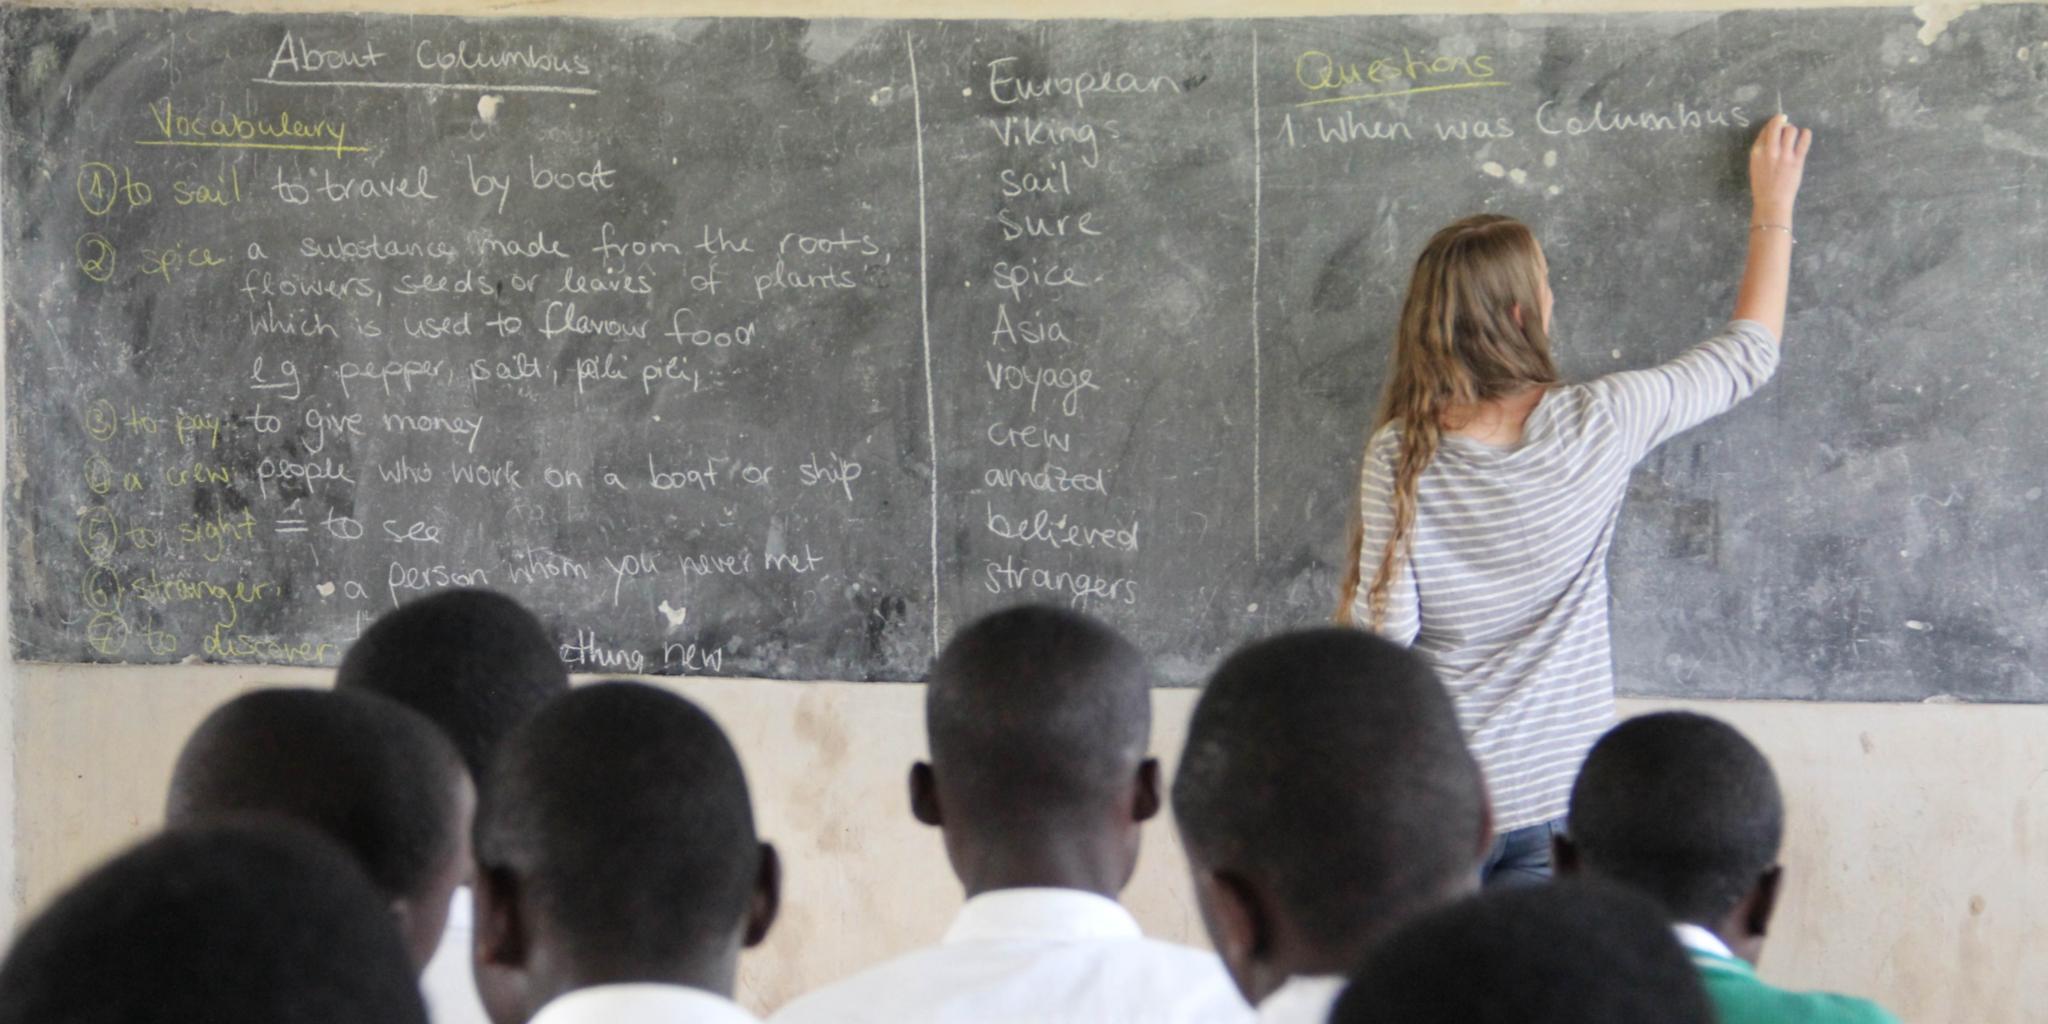 About Columbus
Vocabulary
1 to sail to travel by boat
2 spice a substance made from the roots,
flowers, seeds, or leaves of plants
which is used to flavour food
eg pepper, salt, pili pili,
3 to pay to give money
4 a crew people who work on a boat or ship
5 to sight = to see
6 stranger a person whom you never met
7 to discover ething new
European
Vikings
sail
sure
spice
Asia
voyage
crew
amazed
believed
strangers
Questions
1. When was Columbus